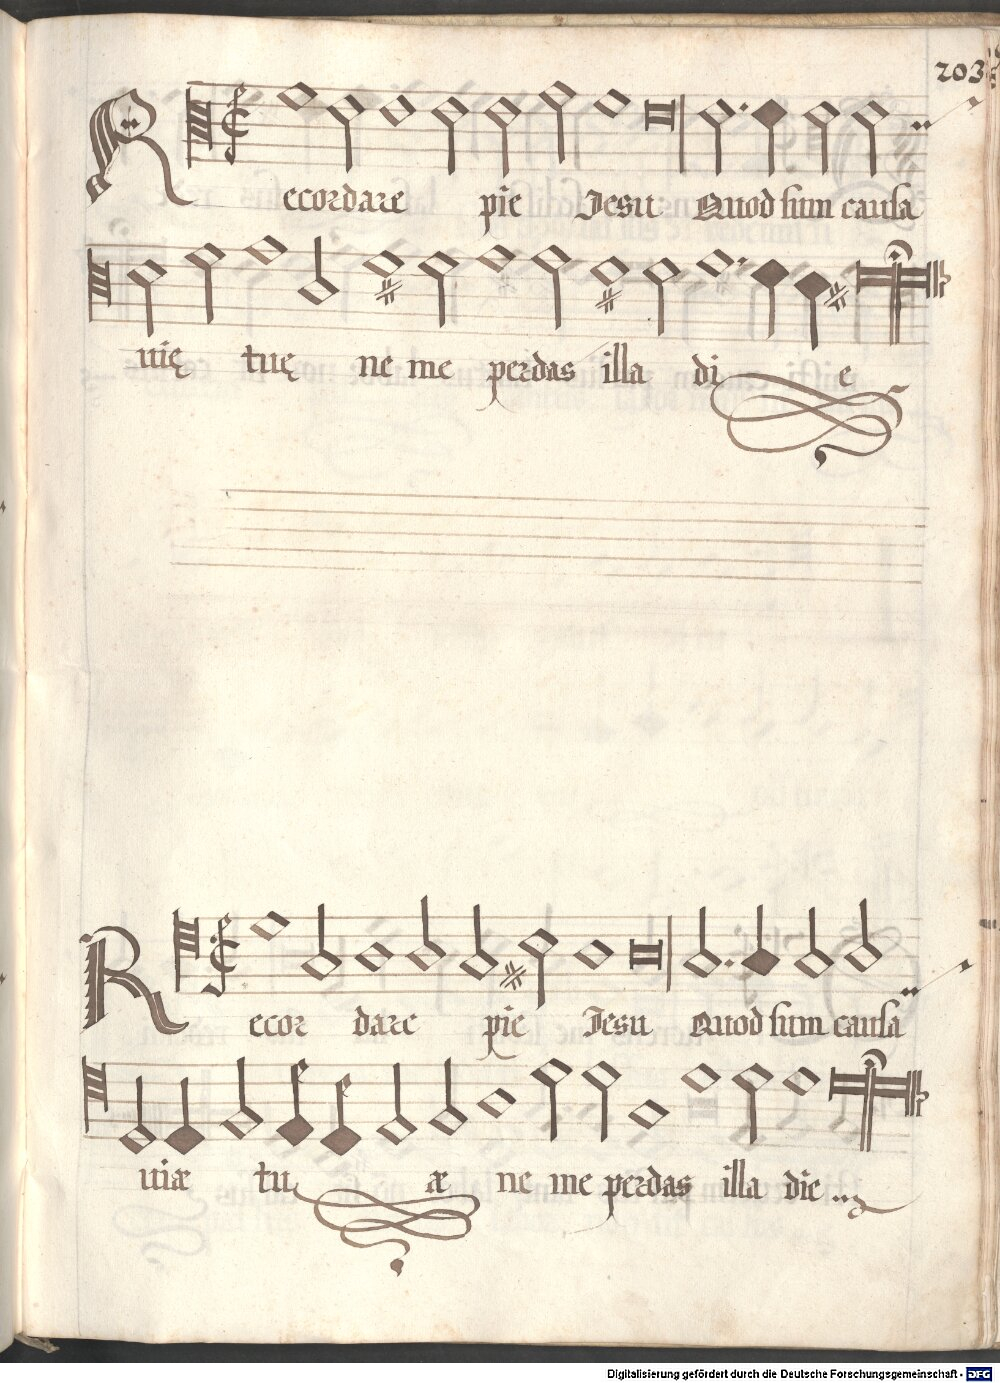 203
Recordare pie Jesu Quod sum causa
uię tuę ne me perdas illa die
Recordare pie Jesu Quod sum causa
uiæ tuæ ne me perdas illa die
Digitalisierung gefördert durch die Deutsche Forschungsgemeinschaft - DFG